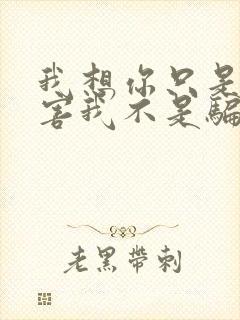 我想你只是
害我不是騙
老黑帶刺